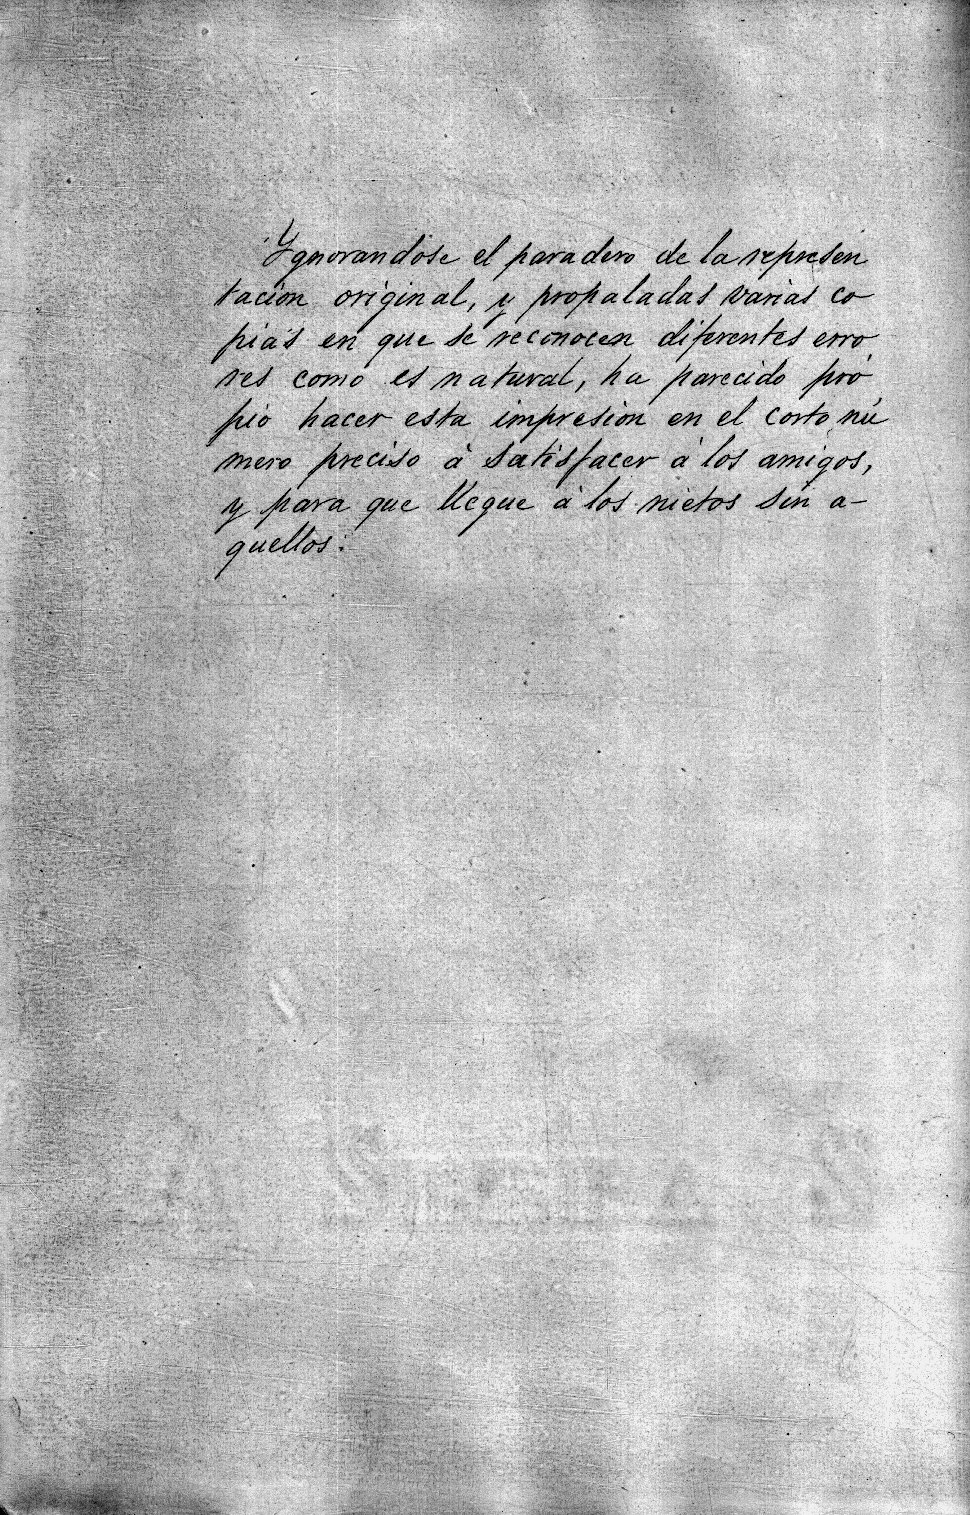 Ygnorandose el paradero de la represen
tacion original, y propaladas varias co
pias en que se reconocen diferentes erro
res como es natural, ha parecido pro
pio hacer esta impresion en el corto nú
mero preciso á satisfacer á los amigos,
y para que llegue á los nietos sin a-
quellos.